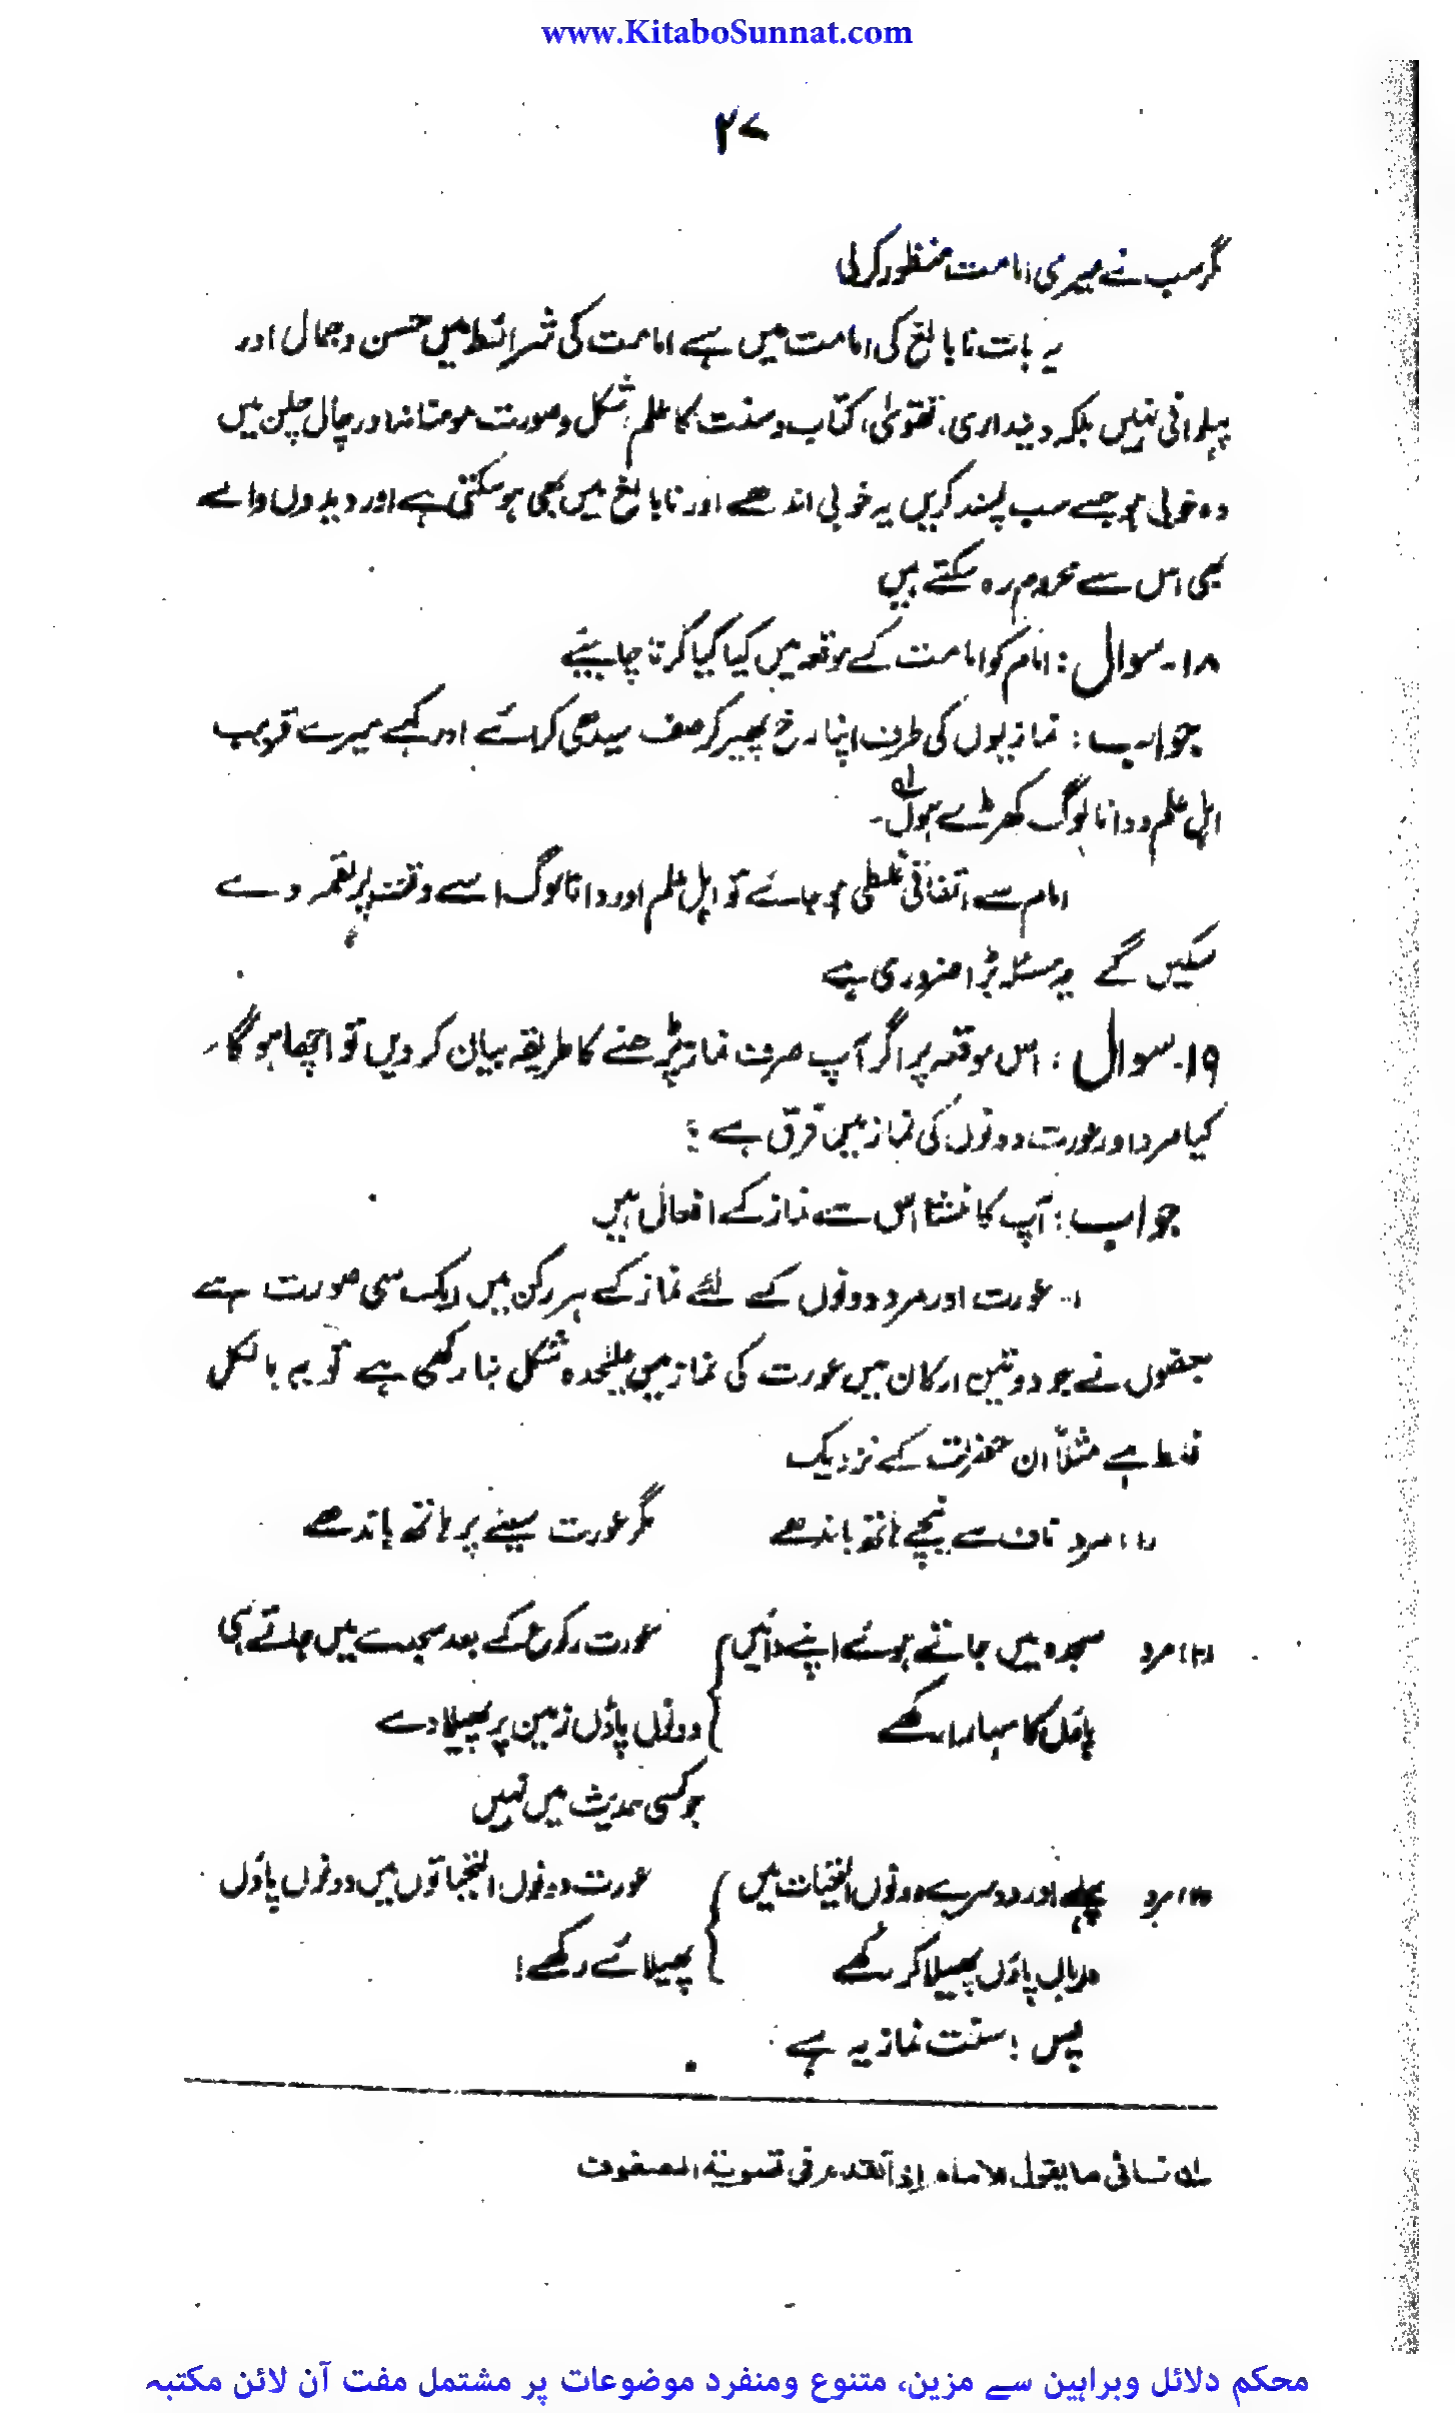 www.KitaboSunnat.com
۲۷
مگر سب نے میری امامت منظور کر لی
یہ بات نابالغ کی امامت میں ہے امامت کی شرائط میں حسن و جمال اور
پہلوانی نہیں بلکہ دینداری، تقویٰ، کتاب و سنت کا علم، شکل و صورت مومنانہ اور چال چلن میں
وہ خوبی ہو جسے سب پسند کریں یہ خوبی اندھے اور نابالغ میں بھی ہو سکتی ہے اور دیدوں والے
بھی اس سے محروم رہ سکتے ہیں
۱۸۔ سوال : امام کو امامت کے موقعہ میں کیا کیا کرنا چاہیئے
جواب : نمازیوں کی طرف اپنا رخ پھیر کر صف سیدھی کرائے اور کہے میرے قریب
اہل علم و دانا لوگ کھڑے ہوں۔
امام سے اتفاقی غلطی ہو جائے تو اہل علم اور دانا لوگ اسے وقت پر لقمہ دے
سکیں گے یہ مسئلہ بڑا ضروری ہے
۱۹۔ سوال : اس موقعہ پر اگر آپ صرف نماز پڑھنے کا طریقہ بیان کر دیں تو اچھا ہو گا۔
کیا مرد اور عورت دونوں کی نماز میں فرق ہے ؟
جواب : آپ کا منشا اس سے نماز کے افعال ہیں
۱۔ عورت اور مرد دونوں کے لئے نماز کے ہر رکن میں ایک سی صورت ہے
بعضوں نے جو دو تین ارکان میں عورت کی نماز میں علیٰحدہ شکل بنا رکھی ہے تو یہ بالکل
غلط ہے مثلاً ان حضرات کے نزدیک
(۱) مرد ناف سے نیچے ہاتھ باندھے مگر عورت سینے پر ہاتھ باندھے
(۲) مرد سجدہ میں جاتے ہوئے اپنے دائیں عورت رکوع کے بعد سجدے میں جاتے ہی
پاؤں کا سہارا رکھے دونوں پاؤں زمین پر پھیلا دے
جو کسی حدیث میں نہیں
(۳) مرد پہلے اور دوسرے دونوں التحیات میں عورت دونوں التحیاتوں میں دونوں پاؤں
دایاں پاؤں پھیلا کر رکھے پھیلائے رکھے!
پس ! سنت نماز یہ ہے
نسائی ما یقول الامام اذا تقدم فی تسویة الصفوف
محکم دلائل وبراہین سے مزین، متنوع ومنفرد موضوعات پر مشتمل مفت آن لائن مکتبہ